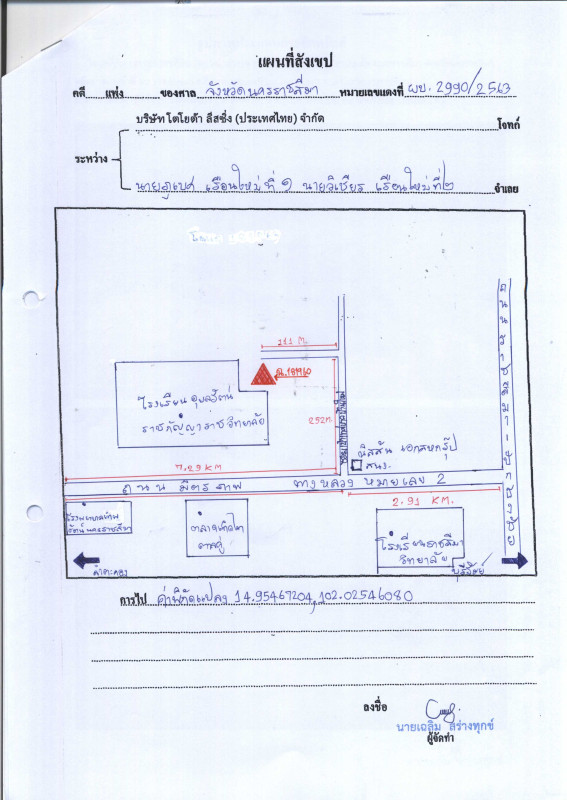 แผนที่สังเขป
คดี แพ่ง ของศาล จังหวัดนครราชสีมา หมายเลขแดงที่ ผบ. 2990/2563
บริษัท โตโยต้า ลีสซิ่ง (ประเทศไทย) จำกัด
โจทก์
ระหว่าง
นายภูเบศ เรือนใหม่ ที่ ๑ นายวิเชียร เรือนใหม่ ที่ ๒ จำเลย
111 M.
โรงเรียน อุบลรัตน์
ราชกัญญาราชวิทยาลัย
252 M.
นิสสัน เอกสหกรุ๊ป
สนง.
7.29 KM
ถนน มิตรภาพ ทางหลวง หมายเลข 2
2.91 KM.
โรงเรียนราชสีมา
วิทยาลัย
บุรีรัมย์
การไป ค่าพิกัดแปลง 14.95467204,102.02546080
ลงชื่อ
นายเฉลิม สร่างทุกข์
ผู้จัดทำ